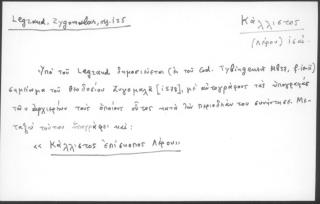 Legrand, Zygomalas, σ. 125
Κάλλιστος
(Λέρου) ις αι.
Ὑπὸ τοῦ Legrand δημοσιεύεται (ἐκ τοῦ Cod. Tybingensis
σημείωμα τοῦ Θεοδοσίου Ζυγομαλᾶ [1578], μὲ αὐτογράφους τὰς ὑπογραφὰς
τῶν ἀρχιερέων τοὺς ὁποίους οὗτος κατὰ τὴν περιοδείαν του συνήντησε. Με-
ταξὺ τούτων ὑπογράφει καὶ:
« Κάλλιστος ἐπίσκοπος Λέρου »